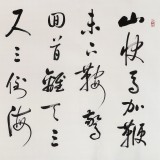 山快馬加鞭
未下鞍驚
回首離天三
尺三倒海